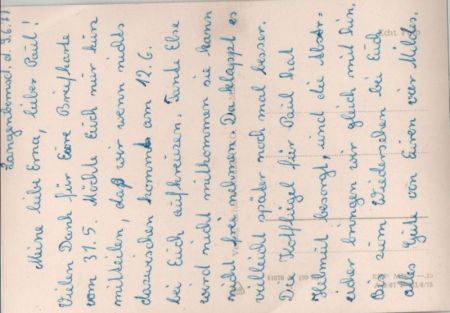 Meine liebe Erna, lieber Paul!
Vielen Dank für Eure Briefkarte
vom 31.5. Möchte Euch nur kurz
mitteilen, daß wir wenn nichts
dazwischen kommt am 12.6.
bei Euch aufkreuzen. Tante Else
wird nicht mitkommen sie kann
nicht frei nehmen. Da klappt es
vielleicht später noch mal besser.
Die Kotflügel für Paul hat
Helmut besorgt, und die
bringen wir gleich mit hin.
Bis zum Wiedersehen bei Euch
alles Gute von Euren vier Mildes.
Echt Foto